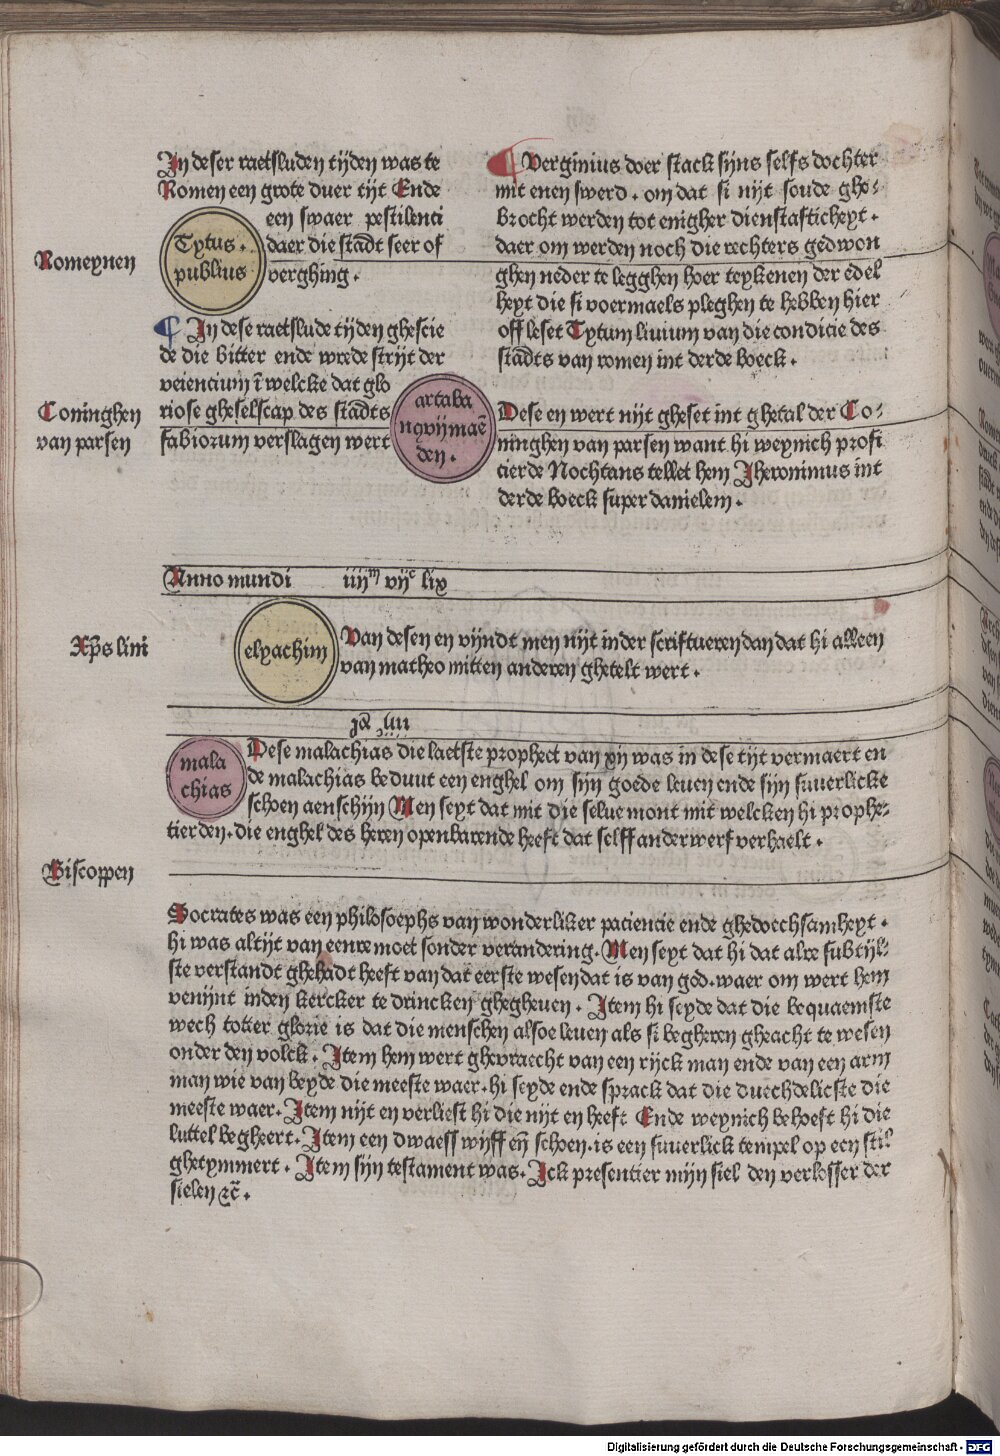 In deser raetsluden tijden was te
Romen een grote duer tijt Ende
een swaer pestilenci
daer die stadt seer of
verghing.
Tytus.
publius
Romeynen
In dese raetslude tijden ghescie
de die bitter ende wrede strijt der
veiencium ī welcke dat glo
riose gheselscap des stādts
fabiorum verslagen wert
Coninghen
van parsen
artaba
nqvijmaē
den.
Verginius doer stack sijns selfs dochter
mit enen swerd. om dat si nijt soude ghe-
brocht werden tot enigher dienstafticheyt.
daer om werden noch die rechters gedwon
ghen neder te legghen hoer teykenen der edel
heyt die si voermaels pleghen te hebben hier
off leset Tytum livium van die condicie des
stādts van romen int derde boeck.
Dese en wert nijt gheset int ghetal der Co-
ninghen van parsen want hi weynich profi
tierde Nochtans tellet hem Jheronimus int
derde boeck super danielem.
Anno mundi iiijᵐ vijᶜ lix
Xp̄s lini
elyachim
Van desen en vijndt men nijt in der scriftueren dan dat hi alleen
van matheo mitten anderen ghetelt wert.
mala
chias
Dese malachias die laetste propheet van xij was in dese tijt vermaert en
de malachias beduut een enghel om sijn goede leuen ende sijn suuerlicke
schoen aenschijn Men seyt dat mit die selue mont mit welcken hi prophe-
tierden. die enghel des heren openbarende heeft dat selff anderwerf verhaelt.
Biscoppen
Socrates was een philosoephs van wonderliker paciencie ende ghedoechsamheyt.
hi was altijt van eenre moet sonder verandering. Men seyt dat hi dat alre subtijl-
ste verstandt ghehadt heeft van dat eerste wesen dat is van god. waer om wert hem
venijnt inden kercker te drincken ghegheuen. Item hi seyde dat die bequaemste
wech totter glorie is dat die menschen alsoe leuen als si begheren gheacht te wesen
onder den volck. Item hem wert ghevraecht van een rijck man ende van een arm
man wie van beyde die meeste waer. hi seyde ende sprack dat die duechdelicste die
meeste waer. Item nijt en verliest hi die nijt en heeft Ende weynich behoeft hi die
luttel begheert. Item een dwaess wijff eñ schoen. is een suuerlick tempel op een stil
ghetymmert. Item sijn testament was. Ick presentier mijn siel den verlosser der
sielen ꝛc̄.
Digitalisierung gefördert durch die Deutsche Forschungsgemeinschaft - DFG